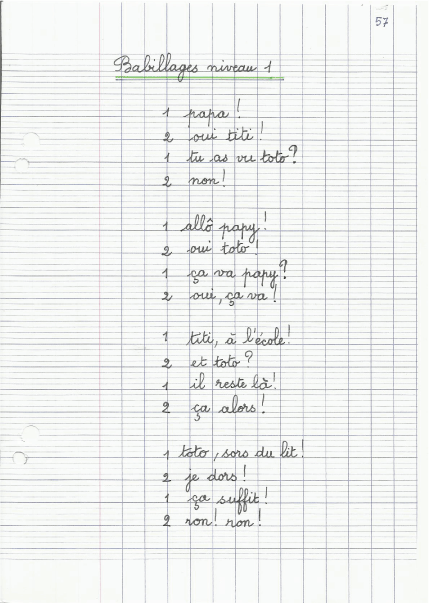 57
Babillages niveau 1
1 papa !
2 oui titi !
1 tu as vu toto ?
2 non !
1 allô papy !
2 oui toto !
1 ça va papy ?
2 oui, ça va !
1 titi, à l'école !
2 et toto ?
1 il reste là !
2 ça alors !
1 toto, sors du lit !
2 je dors !
1 ça suffit !
2 ron ! ron !